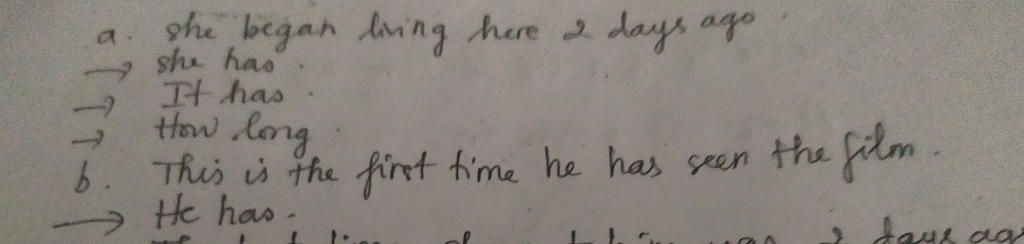 a. she began living here 2 days ago.
→ she has.
→ It has.
→ How long.
b. This is the first time he has seen the film.
→ He has.
2 days ago